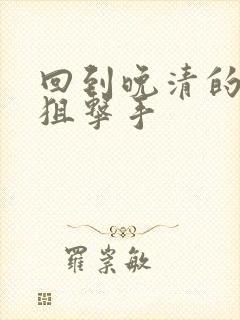 回到晚清的
狙擊手
羅崇敏